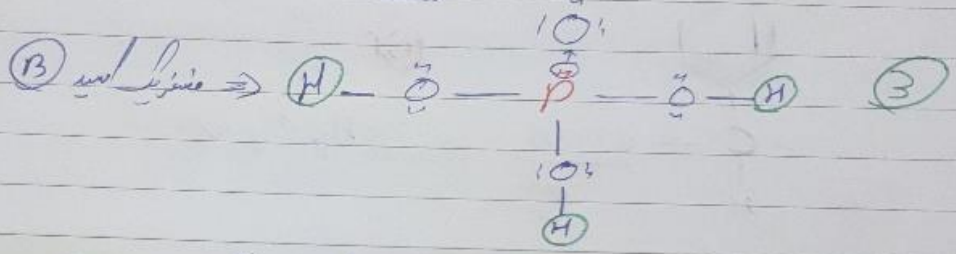 O
B فسفریک اسید ⇒ H – O – P – O – H 3
O
H